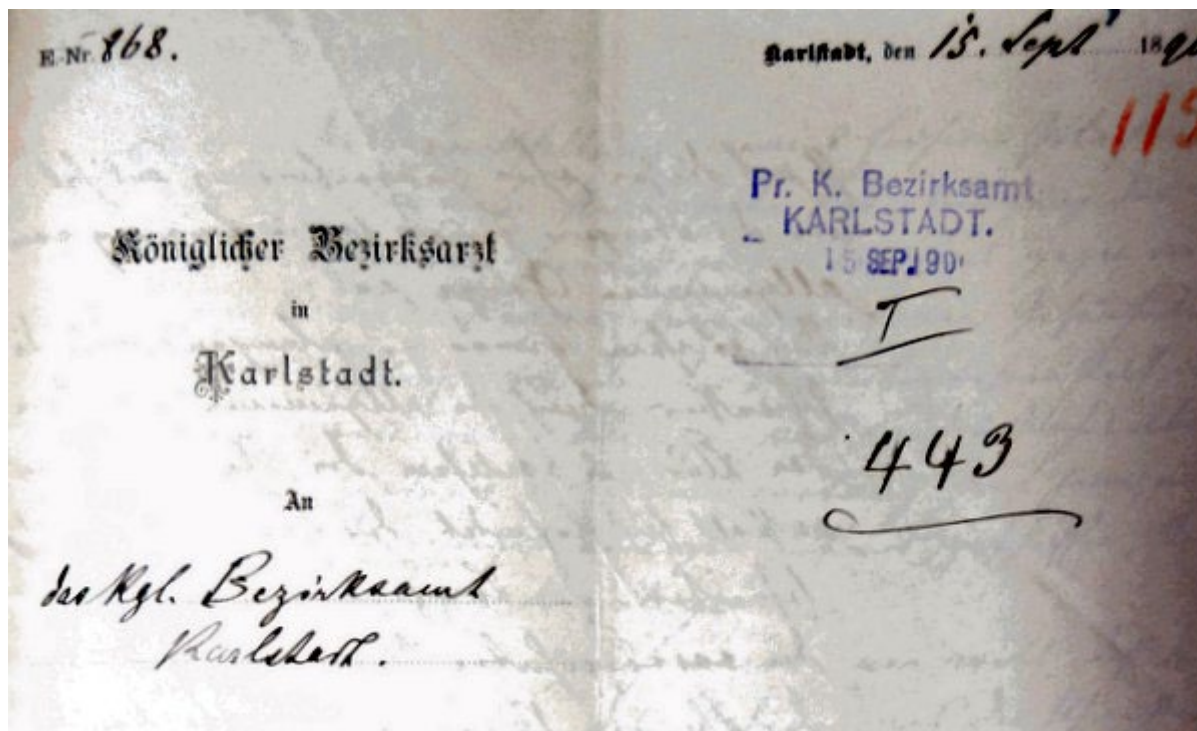 E.-Nr. 868.
Karlstadt, den 15. Sept 18
115
Pr. K. Bezirksamt
KARLSTADT.
15 SEP. 90
I
443
Königlicher Bezirksarzt
in
Karlstadt.
An
das Kgl. Bezirksamt
Karlstadt.